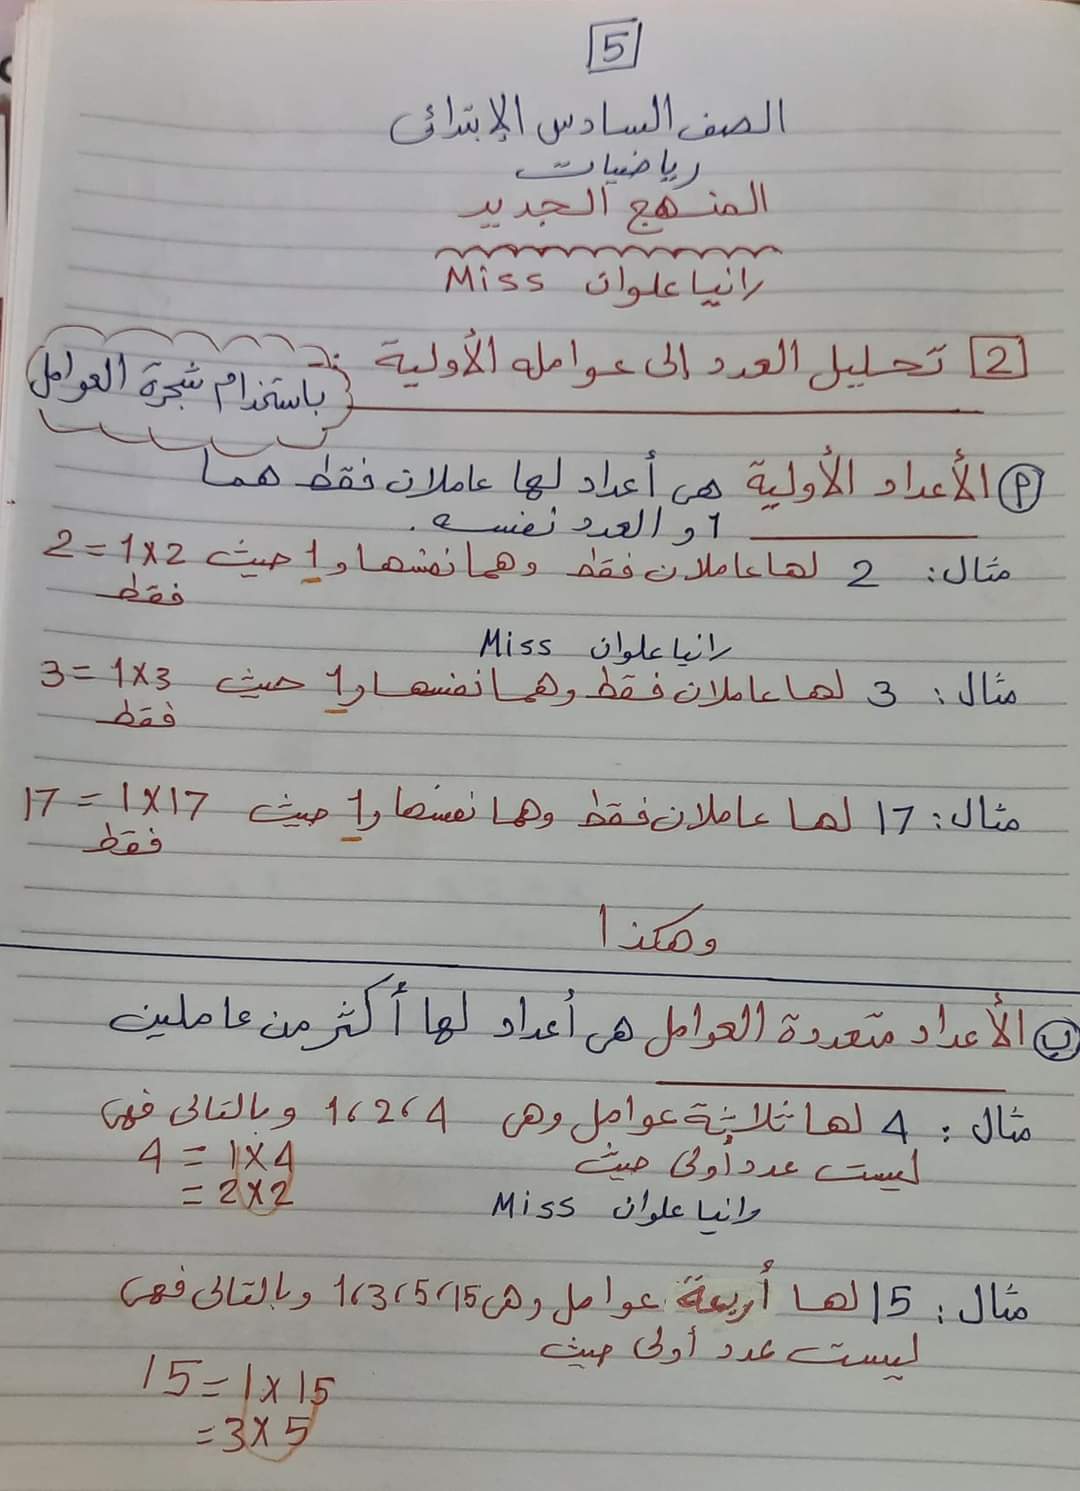 5
الصف السادس الإبتدائى
رياضيات
المنهج الجديد
Miss رانيا علوان
2 تحليل العدد إلى عوامله الأولية
باستخدام شجرة العوامل
أ الأعداد الأولية هى أعداد لها عاملان فقط هما
1 و العدد نفسه.
مثال: 2 لها عاملان فقط وهما نفسها و 1 حيث 2 = 1×2
فقط
Miss رانيا علوان
مثال: 3 لها عاملان فقط وهما نفسها و 1 حيث 3 = 1×3
فقط
مثال: 17 لها عاملان فقط وهما نفسها و 1 حيث 17 = 1×17
فقط
وهكذا
ب الأعداد متعددة العوامل هى أعداد لها أكثر من عاملين
مثال: 4 لها ثلاثة عوامل وهى 1،2،4 وبالتالى فهى
ليست عدد أولى حيث 4 = 1×4
= 2×2
Miss رانيا علوان
مثال: 15 لها أربعة عوامل وهى 1،3،5،15 وبالتالى فهى
ليست عدد أولى حيث
15 = 1×15
= 3×5